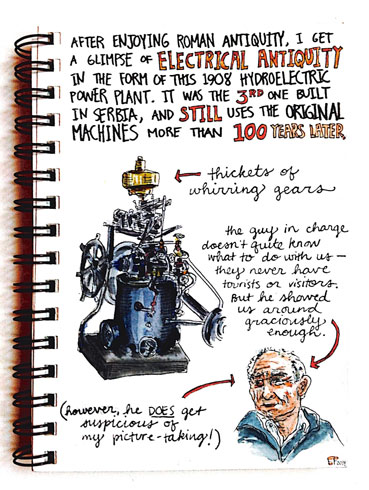 AFTER ENJOYING ROMAN ANTIQUITY, I GET
A GLIMPSE OF ELECTRICAL ANTIQUITY
IN THE FORM OF THIS 1908 HYDROELECTRIC
POWER PLANT. IT WAS THE 3RD ONE BUILT
IN SERBIA, AND STILL USES THE ORIGINAL
MACHINES MORE THAN 100 YEARS LATER
thickets of
whirring gears
the guy in charge
doesn't quite know
what to do with us —
they never have
tourists or visitors.
But he showed
us around
graciously
enough.
(however, he DOES get
suspicious of
my picture-taking!)